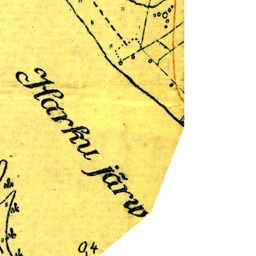 Harku järw
0,4